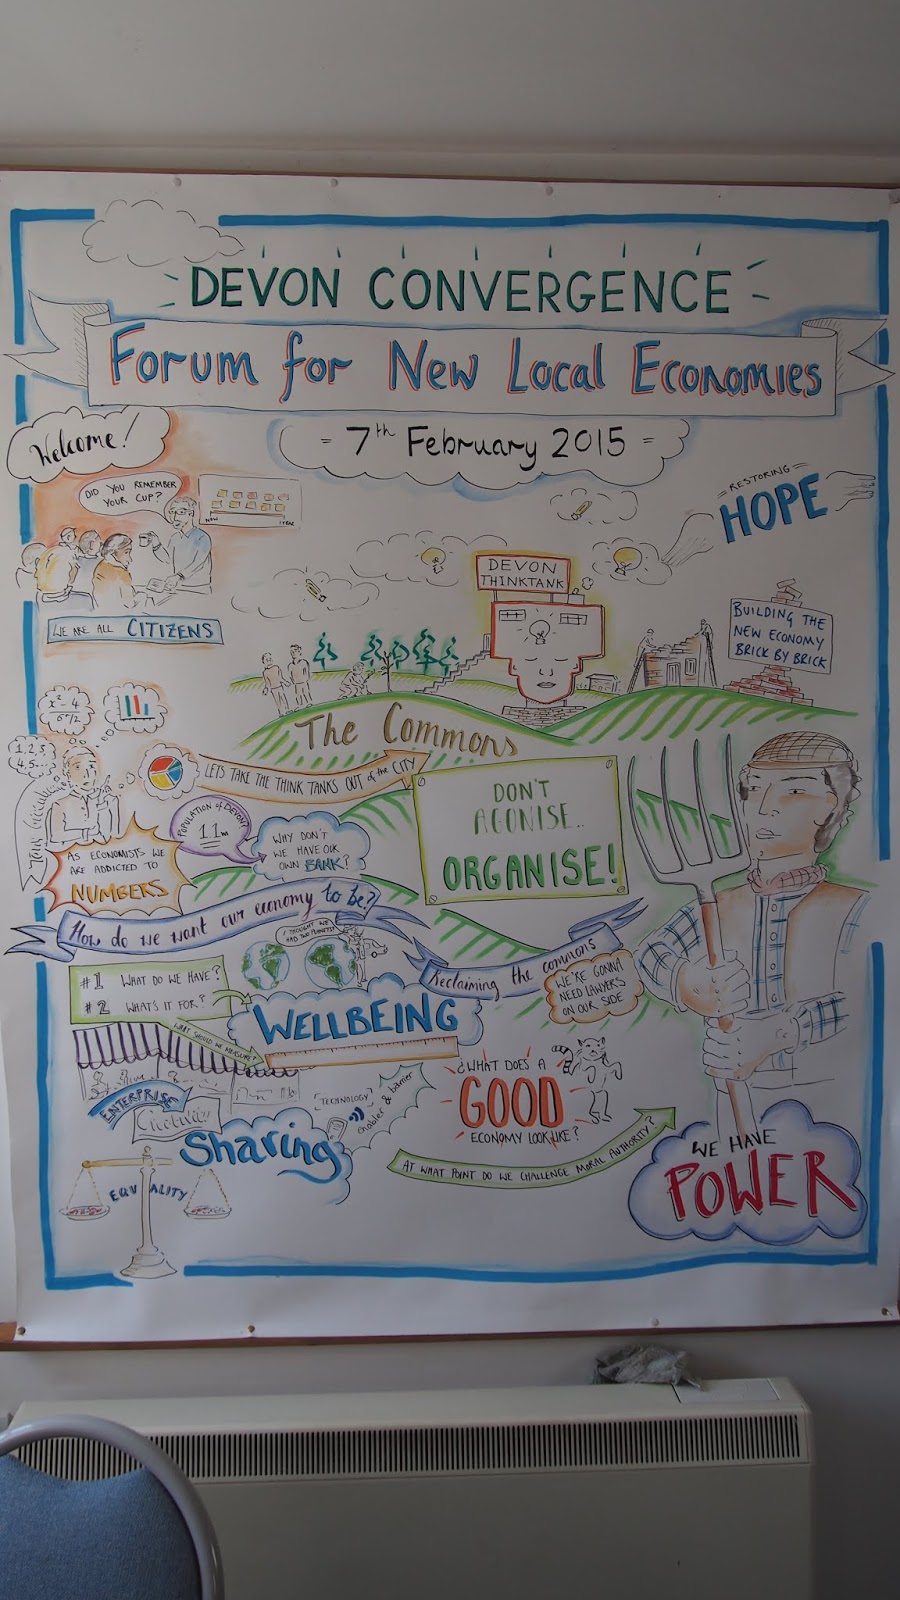 DEVON CONVERGENCE
Forum for New Local Economies
= 7th February 2015 =
Welcome!
DID YOU REMEMBER
YOUR CUP?
NOW
1 YEAR
WE ARE ALL CITIZENS
= RESTORING =
HOPE
DEVON
THINKTANK
BUILDING THE
NEW ECONOMY
BRICK BY BRICK
The Commons
x² - 4
1, 2, 3,
4, 5...
LETS TAKE THE THINK TANKS OUT of the CITY
POPULATION of DEVON?
1.1m
WHY DON'T
WE HAVE OUR
OWN BANK?
AS ECONOMISTS WE
ARE ADDICTED TO
NUMBERS
DON'T
AGONISE..
ORGANISE!
How do we want our economy to be?
I THOUGHT WE
HAD TWO PLANETS!
Reclaiming the commons
WE'RE GONNA
NEED LAWYERS
ON OUR SIDE
#1 WHAT DO WE HAVE?
#2 WHAT'S IT FOR?
WHAT SHOULD WE MEASURE?
WELLBEING
ENTERPRISE
Creative!
Sharing
TECHNOLOGY
enabler & barrier
¿WHAT DOES A
GOOD
ECONOMY LOOK LIKE?
AT WHAT POINT DO WE CHALLENGE MORAL AUTHORITY?
EQUALITY
WE HAVE
POWER